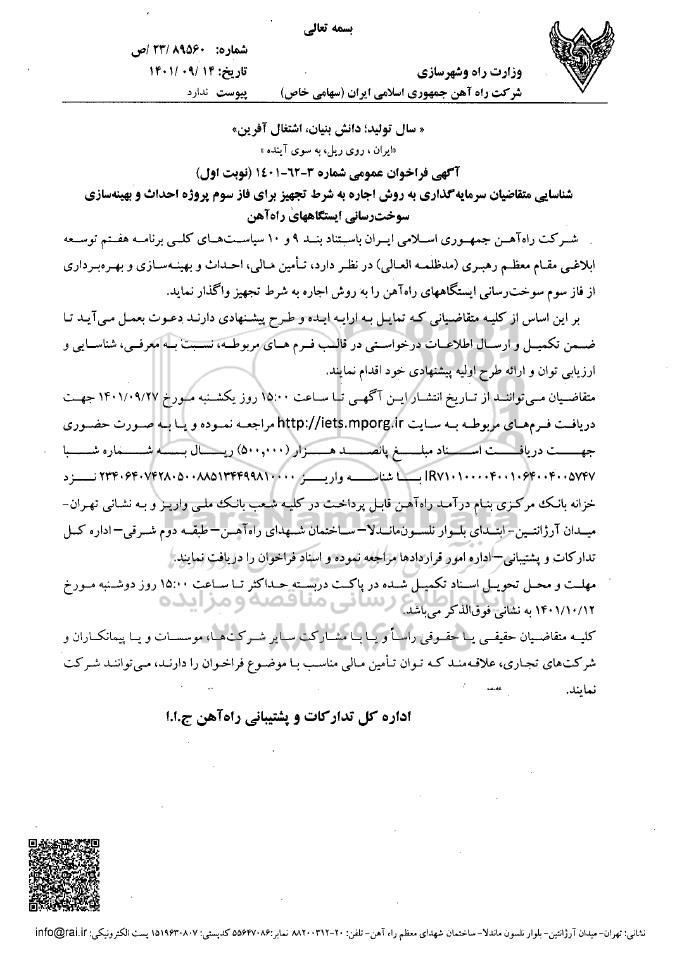 بسمه تعالی
شماره: ۲۳/۸۹۵۶۰/ص
تاریخ: ۱۴۰۱/۰۹/۱۴
پیوست ندارد
وزارت راه وشهرسازی
شرکت راه آهن جمهوری اسلامی ایران (سهامی خاص)
« سال تولید؛ دانش بنیان، اشتغال آفرین»
«ایران ، روی ریل، به سوی آینده »
آگهی فراخوان عمومی شماره ۳-۶۲-۱۴۰۱ (نوبت اول)
شناسایی متقاضیان سرمایه‌گذاری به روش اجاره به شرط تجهیز برای فاز سوم پروژه احداث و بهینه‌سازی
سوخت‌رسانی ایستگاههای راه‌آهن
شـرکت راه‌آهـن جمهـوری اسـلامی ایـران باسـتناد بنـد ۹ و ۱۰ سیاسـت‌هـای کلـی برنامـه هفـتم توسـعه
ابلاغی مقام معظم رهبری (مدظلمه العالی) در نظر دارد، تـأمین مـالی، احـداث و بهینـه‌سـازی و بهـره‌بـرداری
از فاز سوم سوخت‌رسانی ایستگاههای راه‌آهن را به روش اجاره به شرط تجهیز واگذار نماید.
بر این اساس از کلیـه متقاضیـانی کـه تمایـل بـه ارایـه ایـده و طـرح پیشـنهادی دارنـد دعـوت بعمـل مـی‌آیـد تـا
ضمن تکمیـل و ارسـال اطلاعـات درخواستی در قالـب فـرم هـای مربوطـه، نسـبت بـه معرفـی، شناسـایی و
ارزیابی توان و ارائه طرح اولیه پیشنهادی خود اقدام نمایند.
متقاضـیان مـی‌تواننـد از تـاریخ انتشـار ایـن آگهـی تـا سـاعت ۱۵:۰۰ روز یکشـنبه مـورخ ۱۴۰۱/۰۹/۲۷ جهـت
دریافت فـرم‌هـای مربوطـه بـه سـایت http://iets.mporg.ir مراجعـه نمـوده و یـا بـه صـورت حضـوری
جهـــت دریافـــت اســـناد مبلـــغ پانصـــد هـــزار (۵۰۰,۰۰۰) ریـــال بـــه شـــماره شـــبا
IR۷۱۰۱۰۰۰۰۴۰۰۱۰۶۴۰۰۴۰۰۵۷۴۷ بـــا شناســـه واریـــز ۲۳۴۰۶۴۰۷۴۲۸۰۵۰۰۸۸۵۱۳۴۴۹۹۸۱۰۰۰۰ نـــزد
خزانه بانک مرکزی بنام درآمـد راه‌آهن قابل پرداخت در کلیـه شـعب بانـک ملـی واریـز و بـه نشـانی تهـران-
میـدان آرژانتـین- ابتـدای بلـوار نلسـون‌مانـدلا– سـاختمان شـهدای راه‌آهـن– طبقـه دوم شـرقی– اداره کـل
تدارکات و پشتیبانی– اداره امور قراردادها مراجعه نموده و اسناد فراخوان را دریافت نمایند.
مهلـت و محـل تحویـل اسـناد تکمیـل شـده در پاکـت دربسـته حـداکثر تـا سـاعت ۱۵:۰۰ روز دوشـنبه مـورخ
۱۴۰۱/۱۰/۱۲ به نشانی فوق‌الذکر می‌باشد.
کلیـه متقاضـیان حقیقـی یـا حقـوقی رأسـاً و یـا بـا مشـارکت سـایر شـرکت‌هـا، موسسـات و یـا پیمانکـاران و
شرکت‌های تجاری، علاقـه‌منـد کـه تـوان تـأمین مـالی مناسـب بـا موضـوع فراخـوان را دارنـد، مـی‌تواننـد شـرکت
نمایند.
اداره کل تدارکات و پشتیبانی راه‌آهن ج.ا.ا
ParsNamadData
پایگاه اطلاع رسانی مناقصه و مزایده
۰۲۱-۸۸۳۴۹۶۷۰-۵
نشانی: تهران- میدان آرژانتین- بلوار نلسون ماندلا- ساختمان شهدای معظم راه آهن- تلفن: ۲۰-۸۸۲۰۰۳۱۲ نمابر:۵۵۶۴۷۰۸۶ کدپستی: ۱۵۱۹۶۳۰۸۰۷ پست الکترونیکی: info@rai.ir